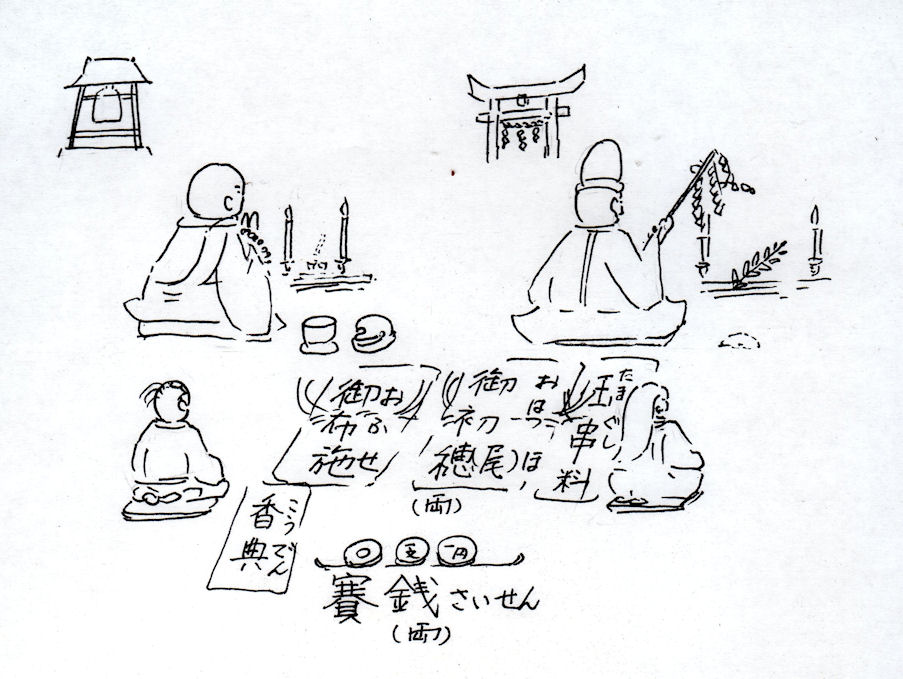 玉串料
たまぐし
御初穂尾)
おはつほ
(両)
御布施
おふせ
香典
こうでん
五
一円
賽銭 さいせん
(両)